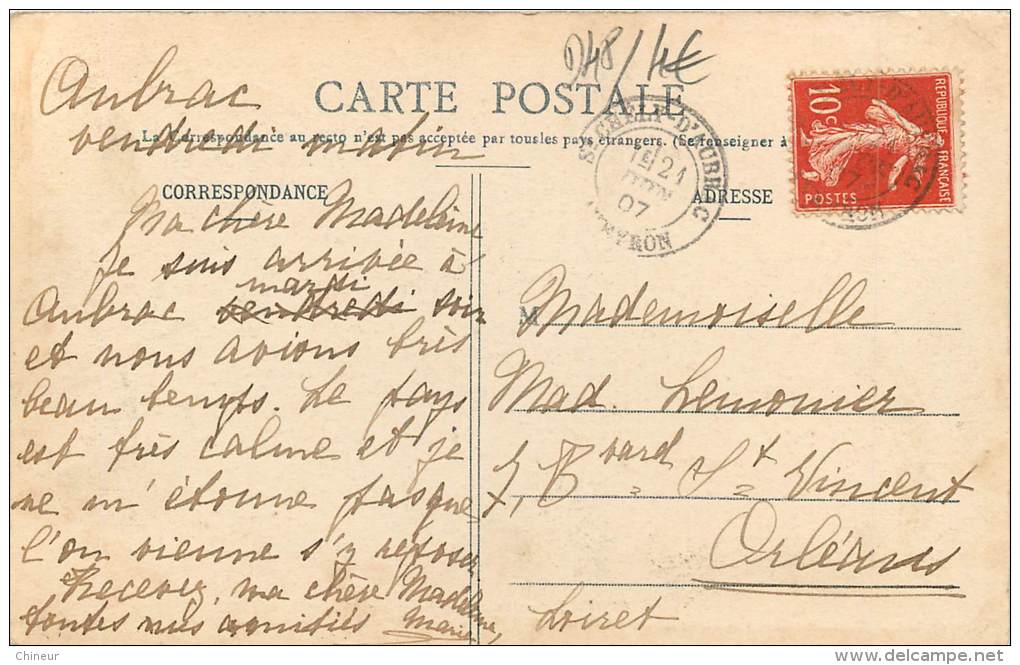 948/4€
Aubrac
vendredi matin
CARTE POSTALE
La Correspondance au recto n'est pas acceptée par tous les pays étrangers. (Se renseigner à
CORRESPONDANCE
ADRESSE
ST CHELY D'AUBRAC
21
07
AVEYRON
REPUBLIQUE FRANÇAISE
10c
POSTES
Ma chère Madeleine
Je suis arrivée à
mardi
Aubrac vendredi soir
et nous avions très
beau temps. Le pays
est très calme et je
ne m'étonne pas que
l'on vienne s'y reposer
Recevez, ma chère Madeleine,
toutes mes amitiés
Marie
M
Mademoiselle
Mad. Lemonier
7, Bvard St Vincent
Orléans
Loiret
Chineur
www.delcampe.net